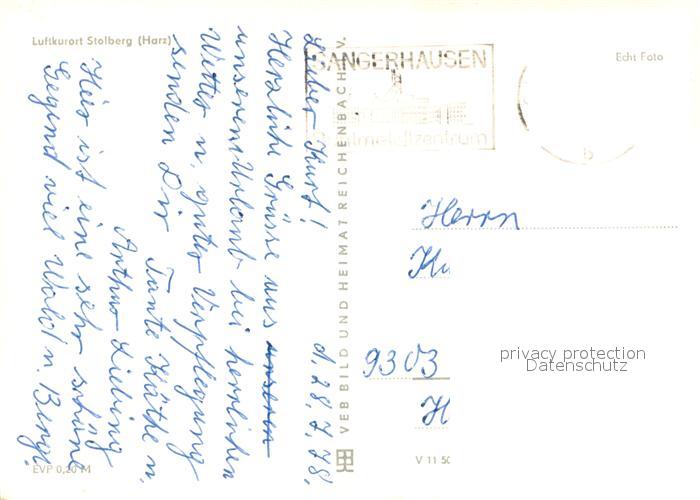 Luftkurort Stolberg (Harz)
Echt Foto
SANGERHAUSEN
VEB BILD UND HEIMAT REICHENBACH i. V.
d. 28. 7. 78.
Lieber Kurt!
Herzliche Grüsse aus unseren
unserem Urlaub bei herrlichen
Wetter u. guter Verpflegung
senden Dir Tante Käthe u.
Arthur Liebing
Hier ist eine sehr schöne
Gegend viel Wald u. Berge.
Herrn
Ku
9303
H
privacy protection
Datenschutz
EVP 0,20 M
V 11 50
b